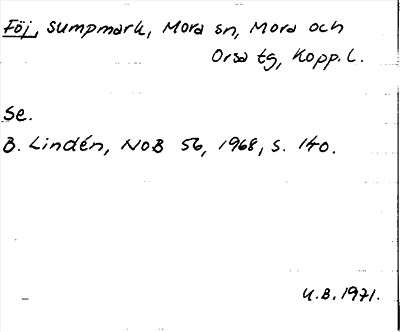 Föj, sumpmark, Mora sn, Mora och
Orsa tg, Kopp. l.
Se.
B. Lindén, NoB 56, 1968, s. 140.
U.B. 1971.